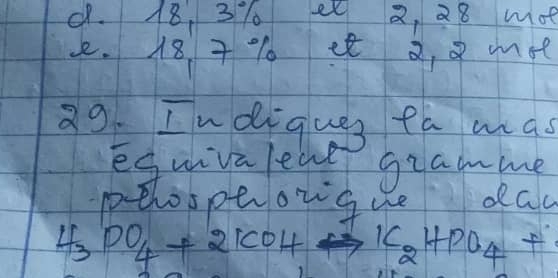 d. 18,3% et 2,28 mol
e. 18,7% et 2,2 mol
29. Indiquez la mas
équivalent gramme
phosphorique dan
H₃PO₄ + 2KOH ⇔ K₂HPO₄ +